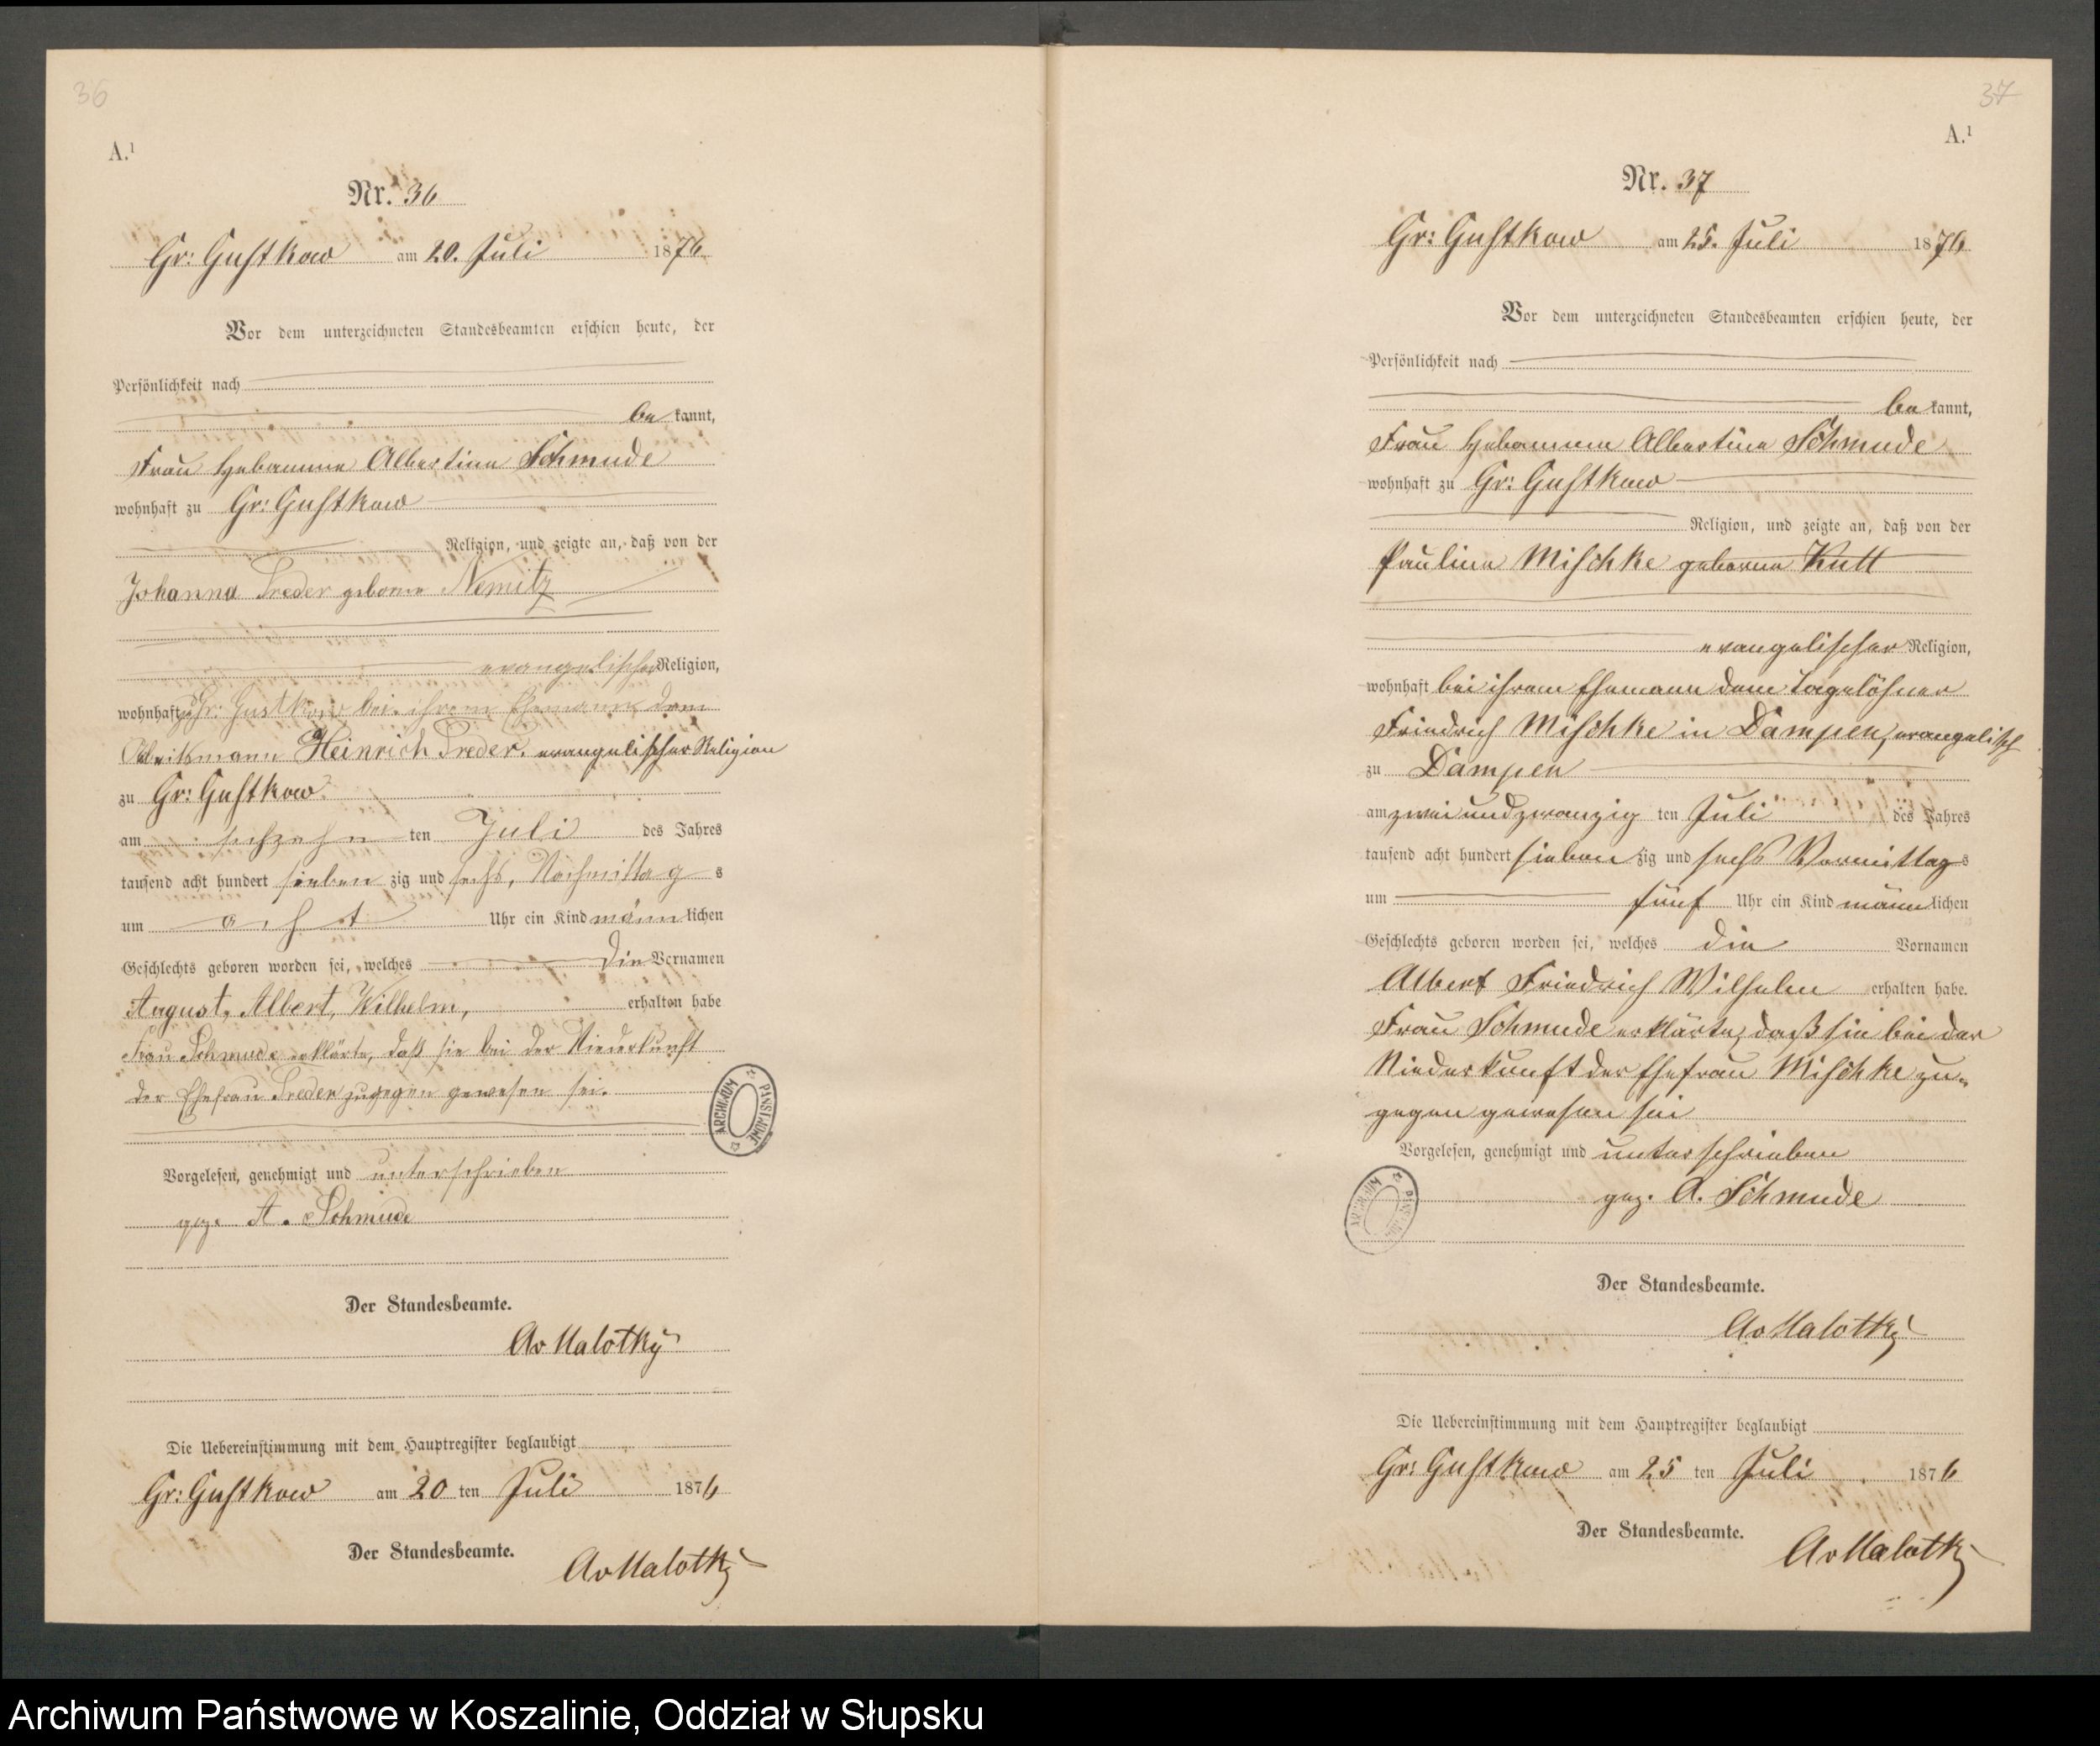 36
A.¹
Nr. 36
Gr: Gustkow am 20. Juli 1876
Vor dem unterzeichneten Standesbeamten erschien heute, der
Persönlichkeit nach
be kannt,
Frau Hebamme Albertine Schmude
wohnhaft zu Gr: Gustkow
Religion, und zeigte an, daß von der
Johanna Treder geborne Nemitz
evangelischer Religion,
wohnhaft zu Gr: Gustkow bei ihrem Ehemann dem
Heinrich Treder. evangelischer Religion
zu Gr: Gustkow
am sechzehn ten Juli des Jahres
tausend acht hundert sieben zig und sechs, Nachmittag s
um acht Uhr ein Kind männ lichen
Geschlechts geboren worden sei, welches die Vornamen
August, Albert, Wilhelm, erhalten habe
Frau Schmude erklärte, daß sie bei der Niederkunft
der Ehefrau Treder zugegen gewesen sei.
ARCHIWUM PAŃSTWOWE
Vorgelesen, genehmigt und unterschrieben
gez. A. Schmude
Der Standesbeamte.
Av Malotky
Die Uebereinstimmung mit dem Hauptregister beglaubigt
Gr: Gustkow am 20 ten Juli 1876
Der Standesbeamte.
Av Malotky
37
A.¹
Nr. 37
Gr: Gustkow am 25. Juli 1876
Vor dem unterzeichneten Standesbeamten erschien heute, der
Persönlichkeit nach
be kannt,
Frau Hebamme Albertine Schmude
wohnhaft zu Gr: Gustkow
Religion, und zeigte an, daß von der
Pauline Mischke geborne Kutt
evangelischer Religion,
wohnhaft bei ihrem Ehemann dem Tagelöhner
Friedrich Mischke in Dampen, evangelisch
zu Dampen
am zweiundzwanzig ten Juli des Jahres
tausend acht hundert sieben zig und sechs Vormittag s
um fünf Uhr ein Kind männ lichen
Geschlechts geboren worden sei, welches die Vornamen
Albert Friedrich Wilhelm erhalten habe.
Frau Schmude erklärte, daß sie bei der
Niederkunft der Ehefrau Mischke zu-
gegen gewesen sei
Vorgelesen, genehmigt und unterschrieben
gez. A. Schmude
Der Standesbeamte.
Av Malotky
Die Uebereinstimmung mit dem Hauptregister beglaubigt
Gr: Gustkow am 25 ten Juli 1876
Der Standesbeamte.
Av Malotky
Archiwum Państwowe w Koszalinie, Oddział w Słupsku